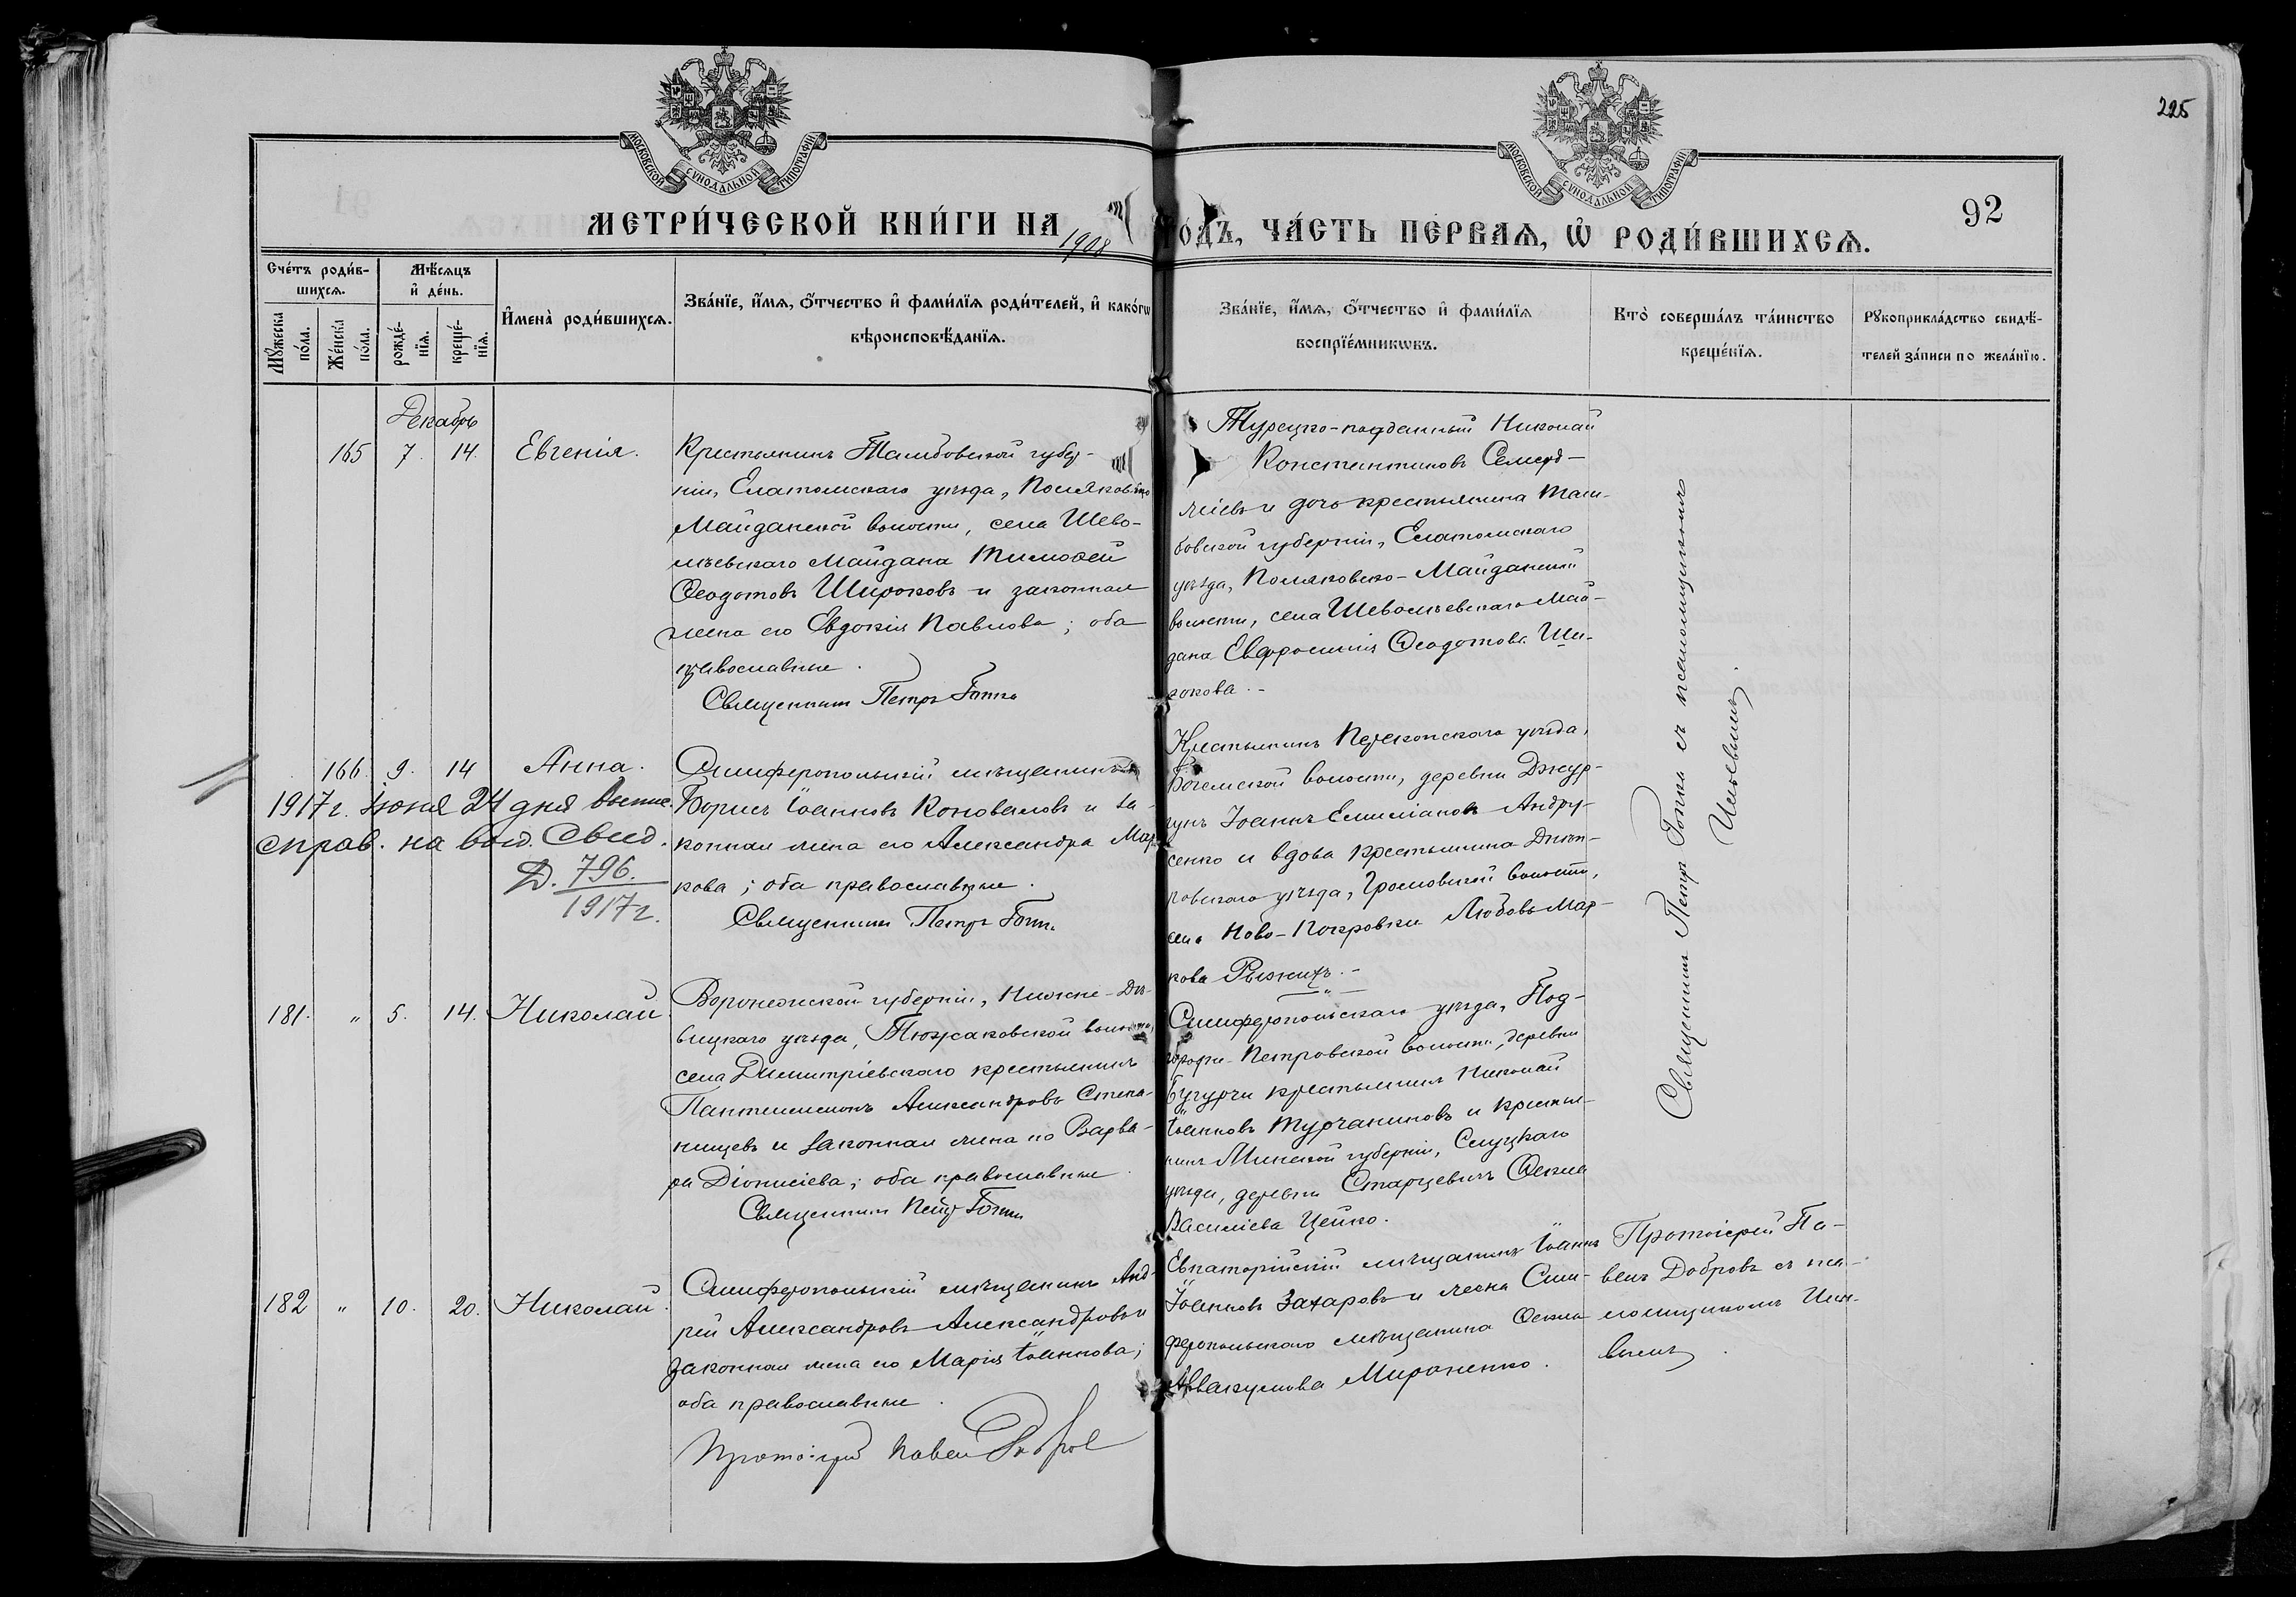 225
92
МОСКОВСКОЙ СѴНОДАЛЬНОЙ ТИПОГРАФІИ
МОСКОВСКОЙ СѴНОДАЛЬНОЙ ТИПОГРАФІИ
МЕТРИ́ЧЕСКОЙ КНИ́ГИ НА 1908 ГО́ДЪ, ЧА́СТЬ ПЕ́РВАѦ, Ѡ҆ РОДИ́ВШИХСѦ.
Сче́тъ роди́в-
шихсѧ.
Мꙋ́жеска по́ла.
Же́нска по́ла.
Мѣ́сѧцъ
и҆ де́нь.
рожде́-
нїѧ.
креще́-
нїѧ.
И҆мена̀ роди́вшихсѧ.
Зва́нїе, и҆́мѧ, ѻ҆́тчество и҆ фами́лїѧ роди́телей, и҆ како́гѡ
вѣроисповѣ́данїѧ.
Зва́нїе, и҆́мѧ, ѻ҆́тчество и҆ фами́лїѧ
воспрїе́мникѡвъ.
Кто̀ соверша́лъ та́инство
креще́нїѧ.
Рꙋкоприкла́дство свидѣ́-
телей за́писи по жела́нїю.
Декабрь
165 7. 14. Евгенія.
Крестьянинъ Тамбовской губер-
ніи, Елатомскаго уѣзда, Поляковско
Майданской волости, села Шево-
лѣевскаго Майдана Тимоѳей
Ѳеодотовъ Широковъ и законная
жена его Евдокія Павлова; оба
православные.
Священникъ Петръ
Турецко-подданный Николай
Константиновъ Семерд-
жіевъ и дочь крестьянина Там-
бовской губерніи, Елатомскаго
уѣзда, Поляковско-Майданской
волости, села Шеволѣевскаго Май-
дана Евфросинія Ѳеодотова Ши-
рокова.-
166. 9. 14 Анна.
1917 г. Іюня 24 дня выпис.
справ. на выд. Свид.
Д. 796.
1917 г.
Симферопольскій мѣщанинъ
Борисъ Іоанновъ Коноваловъ и за-
конная жена его Александра Мар-
кова; оба православные.
Священникъ Петръ
Крестьянинъ Перекопскаго уѣзда,
Богемской волости, деревни Джур-
чукъ Іоаннъ Емиліановъ Андру-
сенко и вдова крестьянина Днѣп-
ровскаго уѣзда, Громовской волости,
села Ново-Покровки Любовь Мар-
кова Рыжихъ.-
181. " 5. 14. Николай
Воронежской губерніи, Нижне-Дѣ-
вицкаго уѣзда, волости
села Димитріевскаго крестьянинъ
Пантелеимонъ Александровъ Степа-
нищевъ и законная жена его Варва-
ра Діонисіева; оба православные.
Священникъ Петръ
Симферопольскаго уѣзда, Под-
городне-Петровской волости, деревни
Бугурчи крестьянинъ Николай
Іоанновъ Турчаниновъ и крестья-
нинъ Минской губерніи, Слуцкаго
уѣзда, деревни Старцевичъ Ѳекла
Василіева Цейко.
Священникъ Петръ съ псаломщикомъ
Ильевымъ.
182 " 10. 20. Николай.
Симферопольскій мѣщанинъ Анд-
рей Александровъ Александровъ и
законная жена его Марія Іоаннова;
оба православные.
Протоіерей Павелъ Добров
Евпаторійскій мѣщанинъ Іоаннъ
Іоанновъ Захаровъ и жена Сим-
феропольскаго мѣщанина Ѳекла
Аввакумова Мироненко.
Протоіерей Па-
велъ Добровъ съ пса-
ломщикомъ Илье-
вымъ.